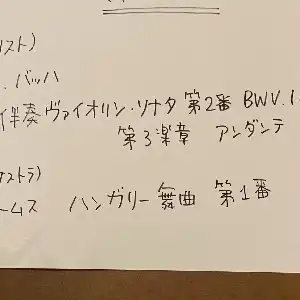 スト)
. バッハ
伴奏ヴァイオリン・ソナタ 第2番 BWV.1
第3楽章 アンダンテ
ストラ)
ームス ハンガリー舞曲 第1番